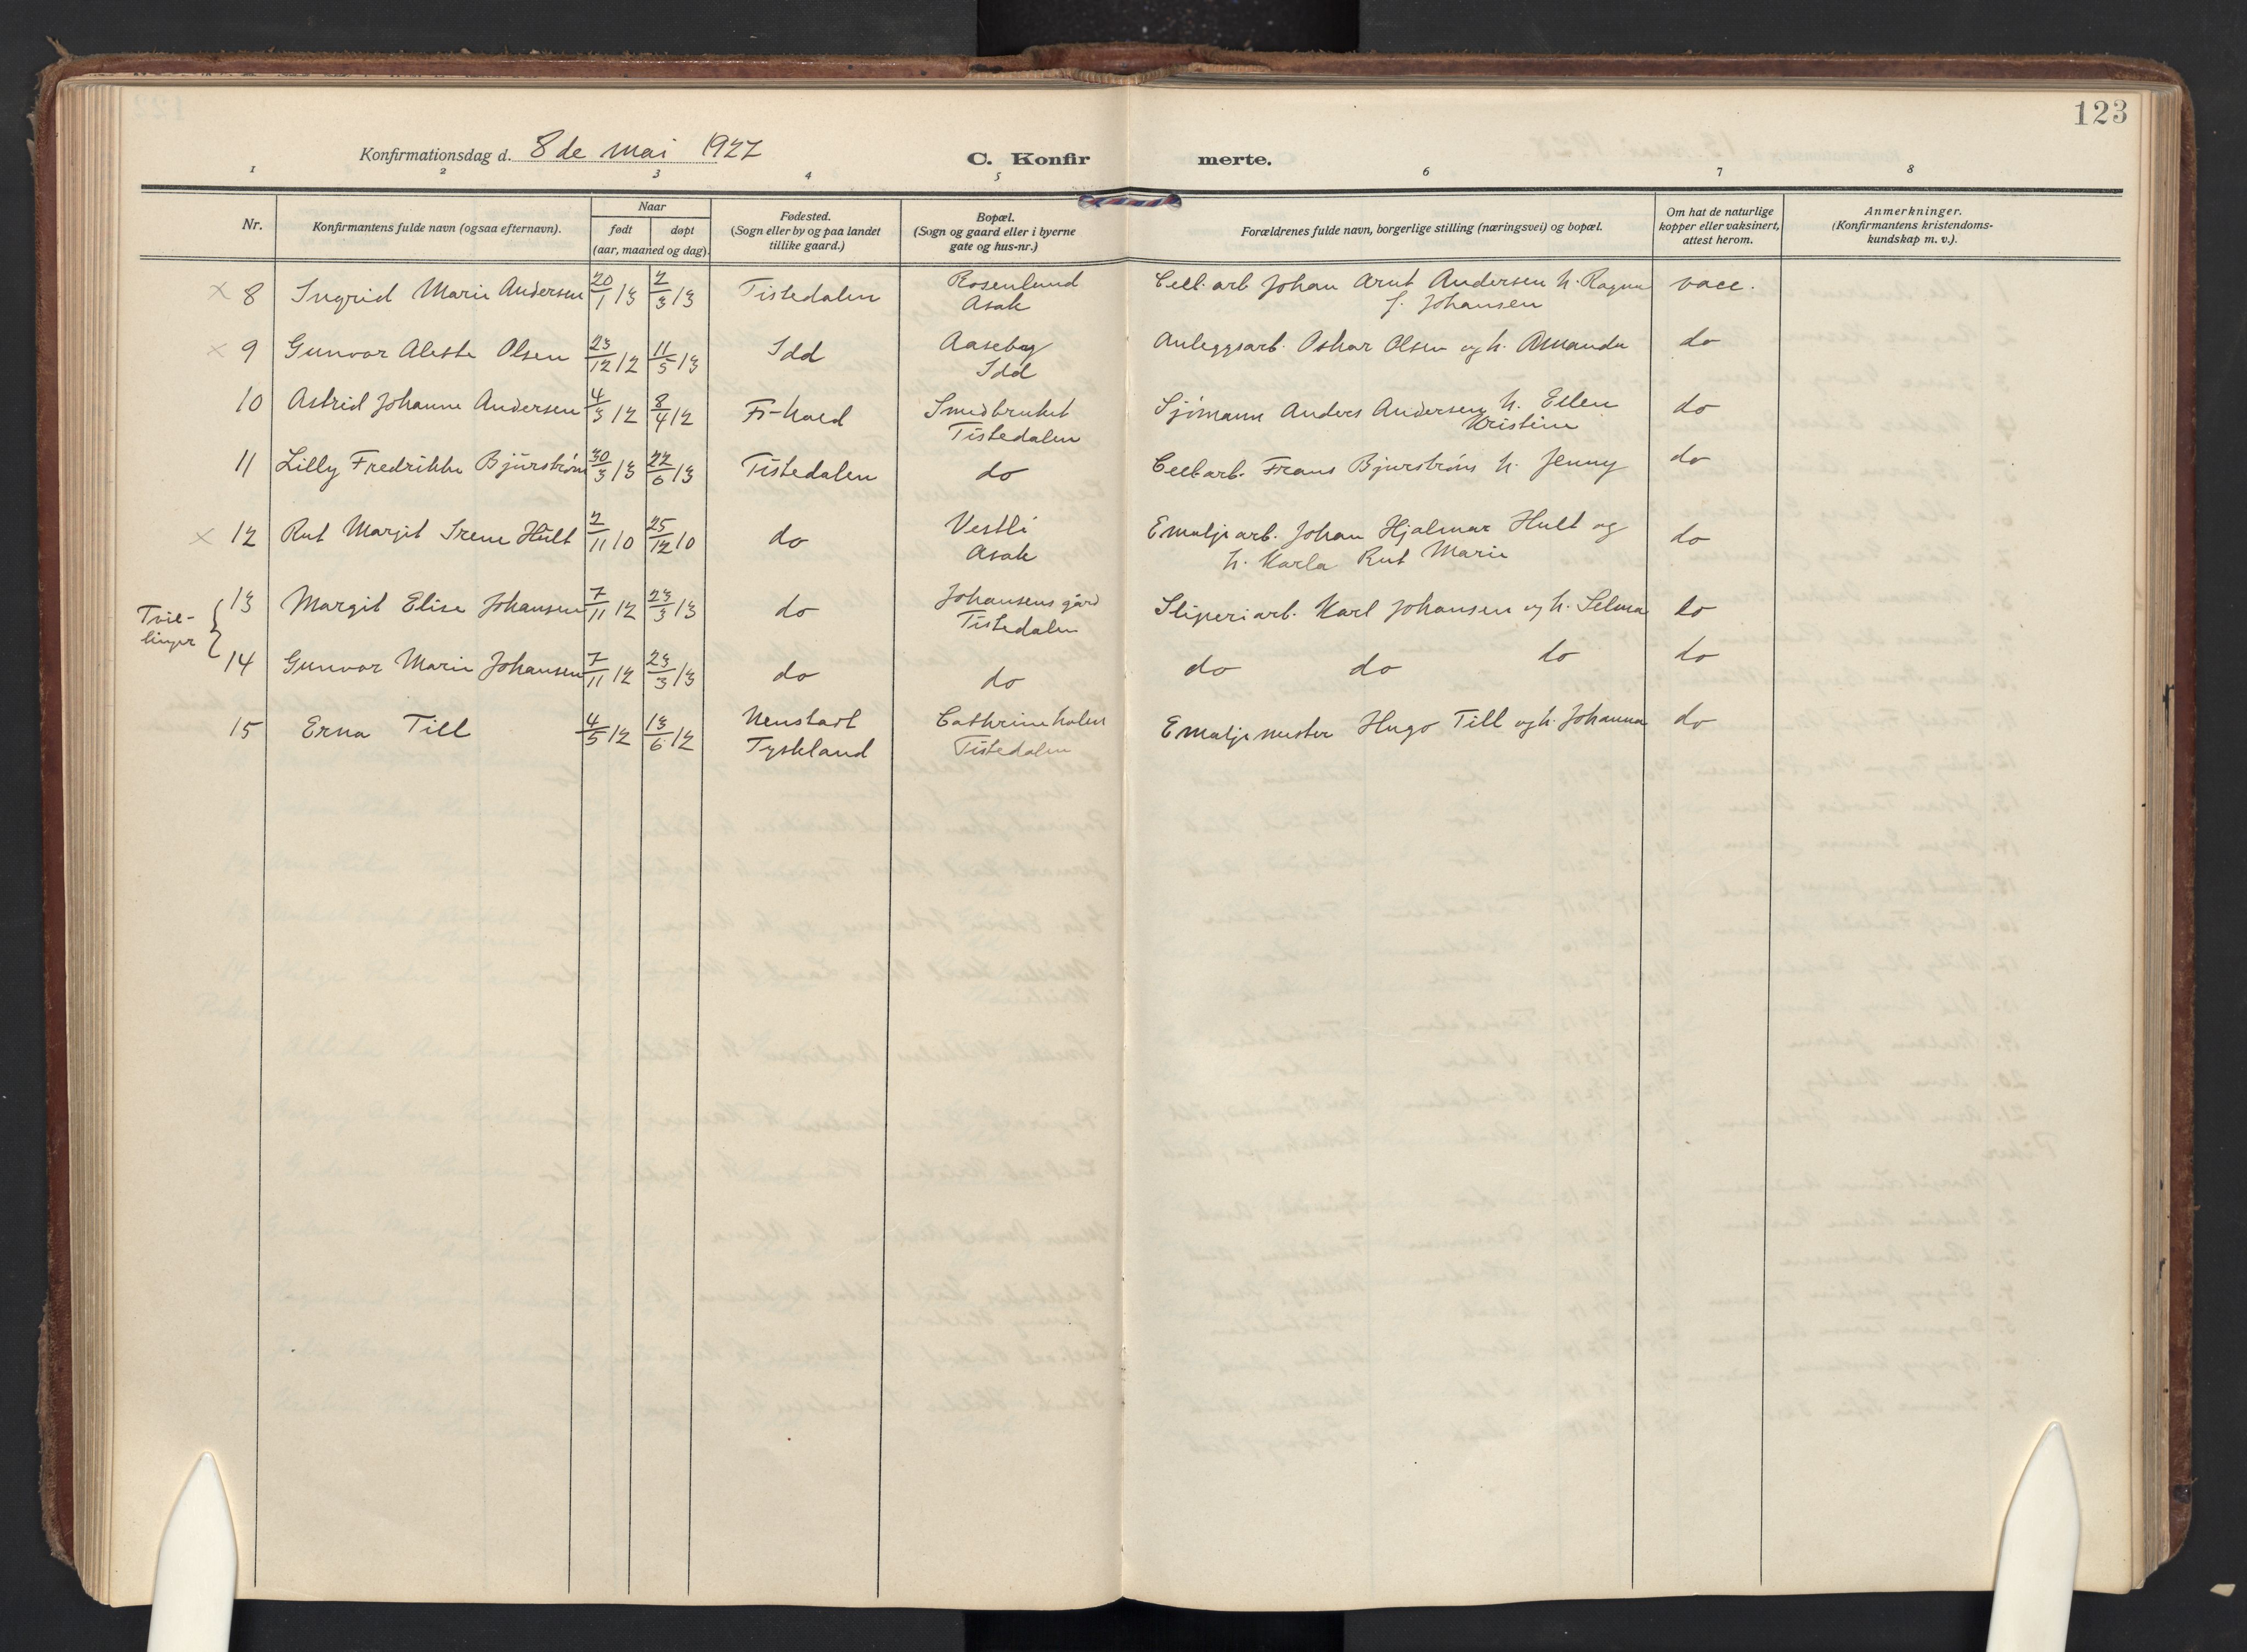 123
Konfirmationsdag d. 8 de mai 1927
C. Konfirmerte.
1 2 3 4 5 6 7 8
Nr.
Konfirmantens fulde navn (ogsaa efternavn).
Naar
født døpt
(aar, maaned og dag).
Fødested.
(Sogn eller by og paa landet
tillike gaard.)
Bopæl.
(Sogn og gaard eller i byerne
gate og hus-nr.)
Forældrenes fulde navn, borgerlige stilling (næringsvei) og bopæl.
Om hat de naturlige
kopper eller vaksinert,
attest herom.
Anmerkninger.
(Konfirmantens kristendoms-
kundskap m. v.).
x 8 Ingrid Marie Andersen 20/1 13 2/3 13 Tistedalen Rosenlund Cell. arb Johan Arnt Andersen h. Ragna vacc.
Asak f. Johansen
x 9 Gunvor Aleste Olsen 23/12 12 11/5 13 Idd Aaseby Anleggsarb. Oskar Olsen og h. Amanda do
Idd
10 Astrid Johanne Andersen 4/3 12 8/4 12 Fr-hald Smedbruket Sjømann Anders Andersen h. Ellen do
Tistedalen Kristine
11 Lilly Fredrikke Bjürstrøm 30/3 13 22/6 13 Tistedalen do Cellarb. Frans Bjurstrøm h. Jenny do
x 12 Rut Margit Irene Hult 2/11 10 25/12 10 do Vestli Emaljearb. Johan Hjalmar Hult og do
Asak h. Karla Rut Marie
Tvil-
linger
13 Margit Elise Johansen 7/11 12 23/3 13 do Johansens gård Sliperiarb. Karl Johansen og h. Selma do
Tistedalen
14 Gunvor Marie Johansen 7/11 12 23/3 13 do do do do do do
15 Erna Till 4/5 12 13/6 12 Neustadt Cathrineholm Emaljemester Hugo Till og h. Johanna do
Tyskland Tistedalen